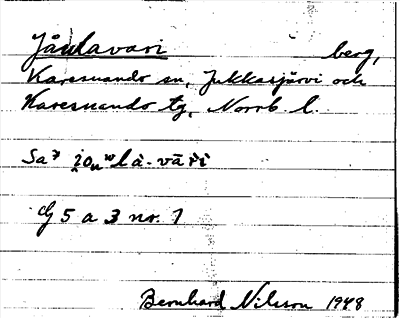 Jåulavari berg,
Karesuando sn, Jukkasjärvi och
Karesuando tg, Norrb l.
Sa
G 5 a 3 no. 1
Bernhard Nilsson 1948